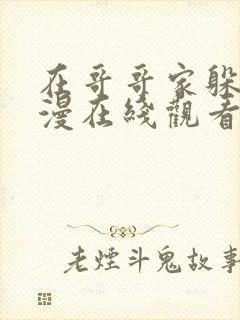 在哥哥家躲
漫在綫觀看
老煙斗鬼故事